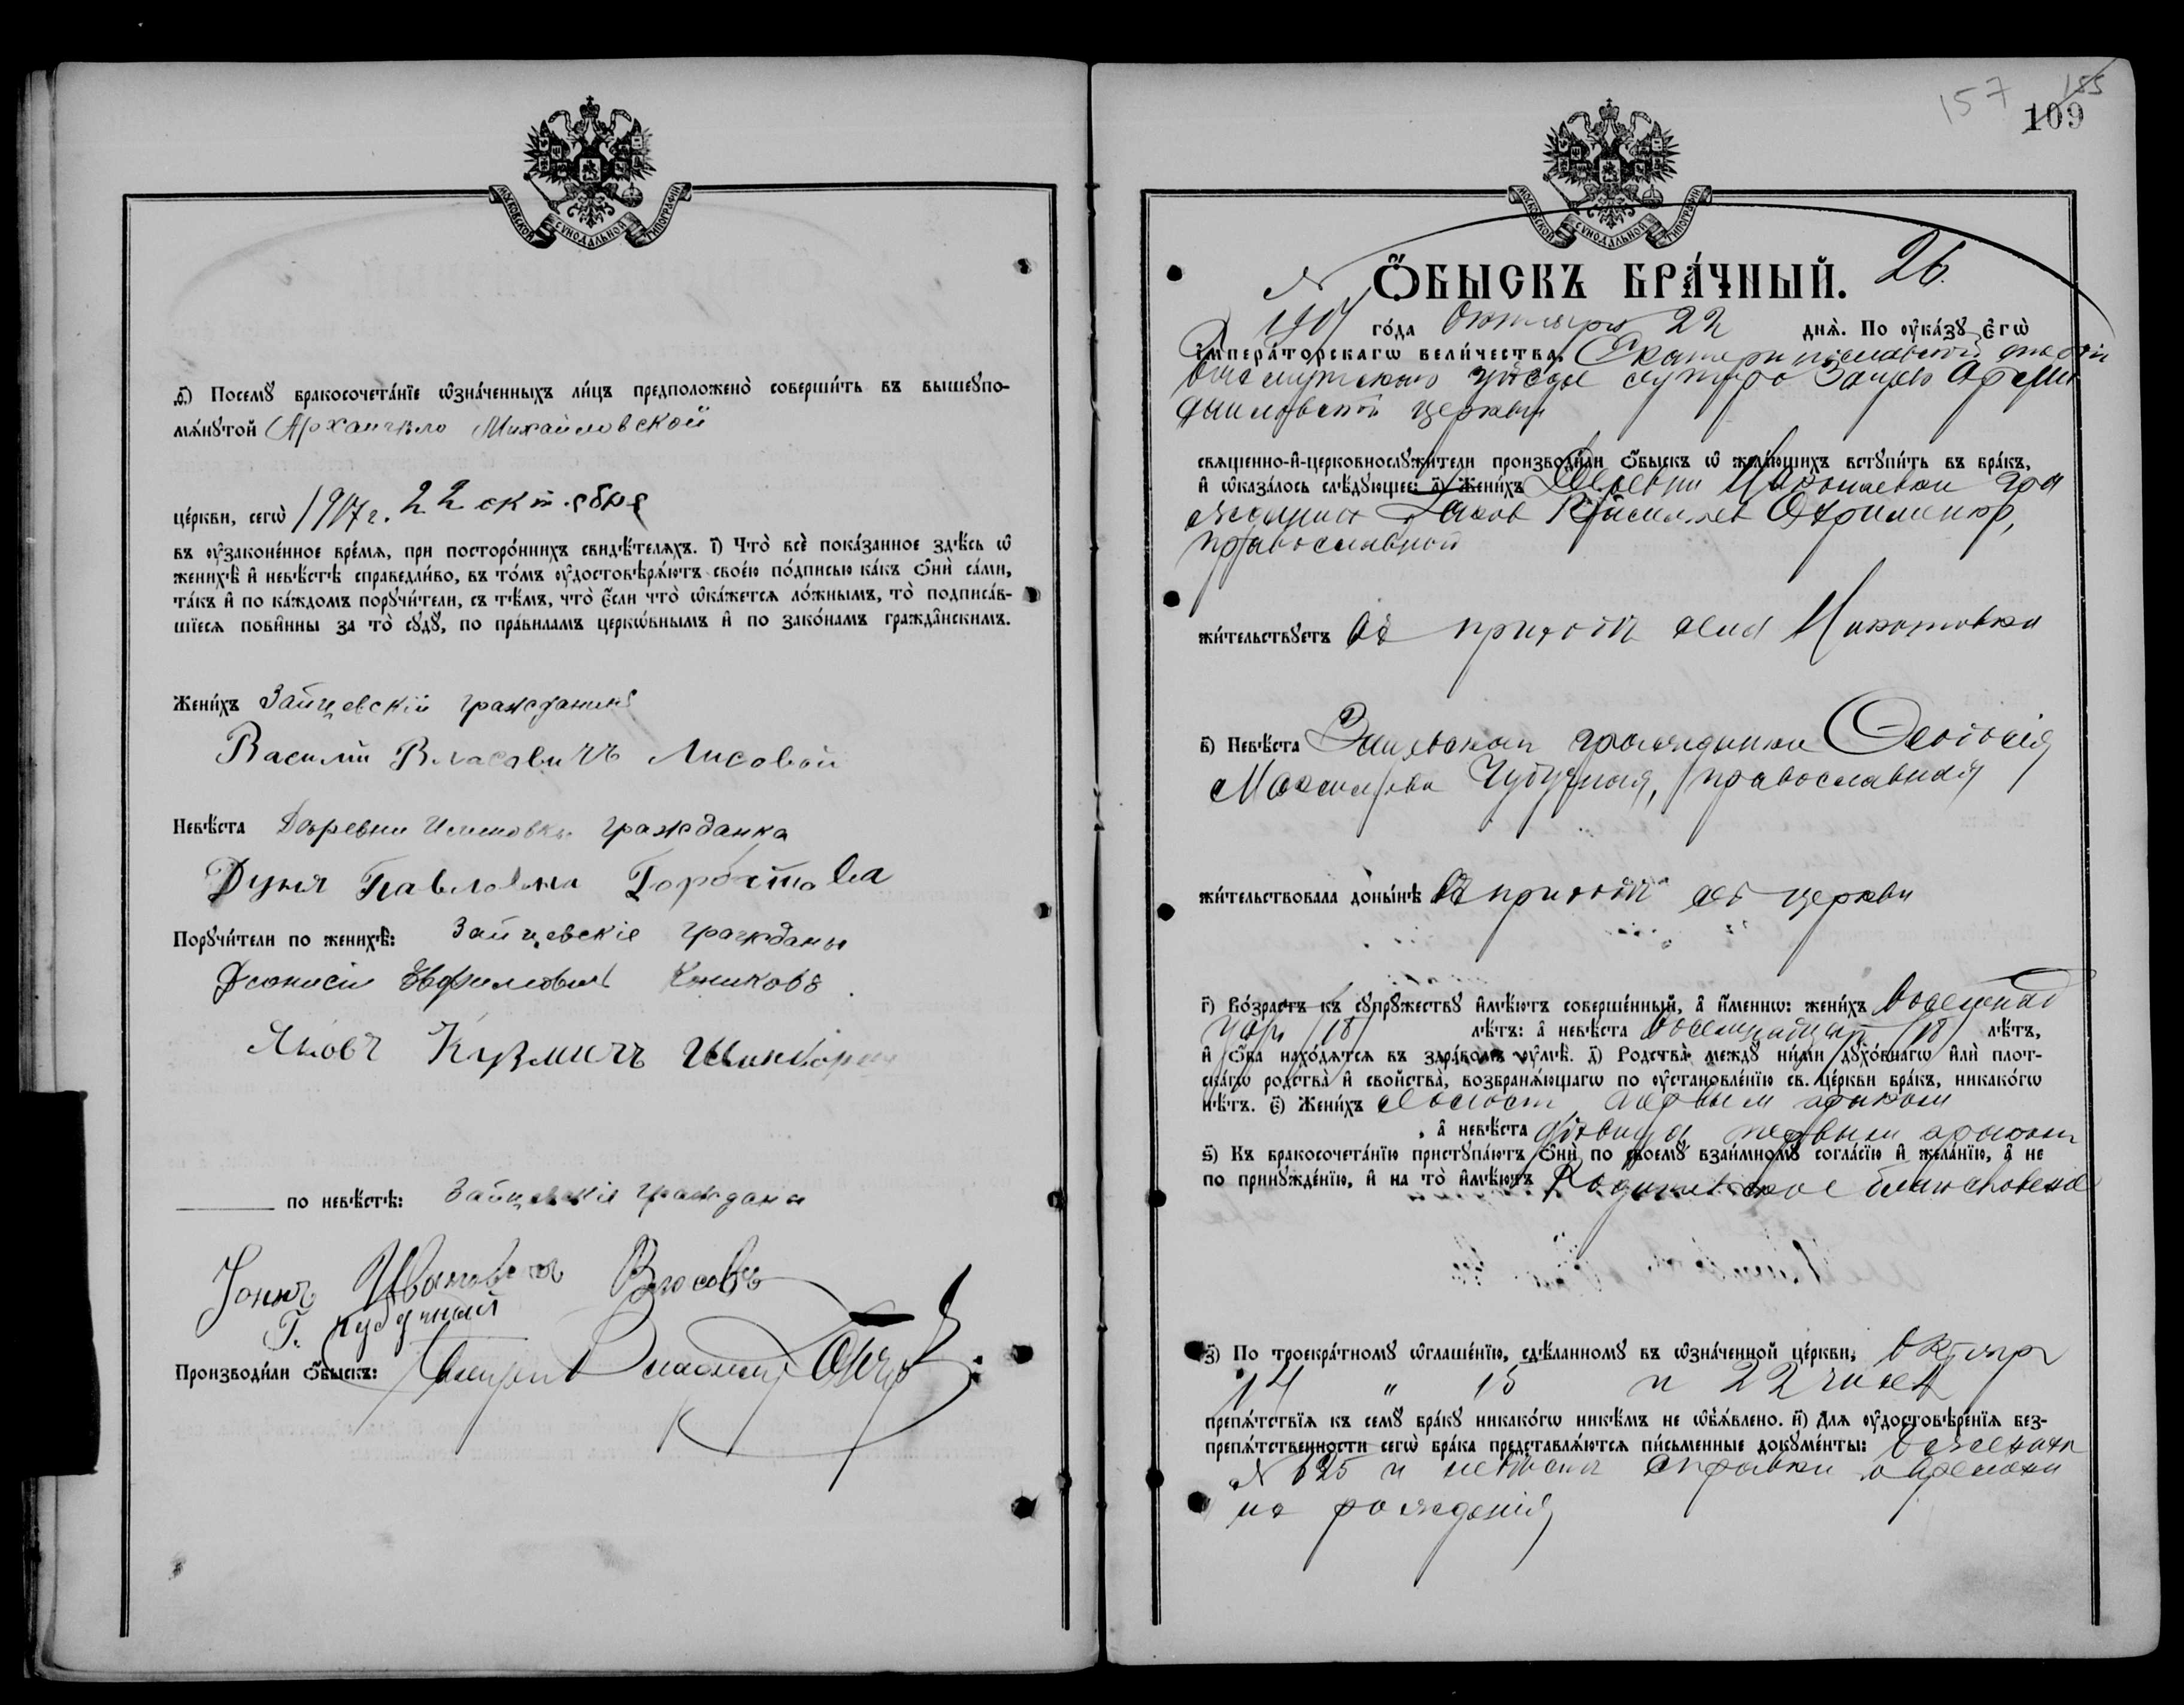 МОСКОВСКОЙ СѴНОДАЛЬНОЙ ТИПОГРАФІИ
ѳ҃) Посемꙋ̀ бракосочета́нїе ѡ҆зна́ченныхъ ли́цъ предположено̀ соверши́ть въ вышеꙋпо-
мѧ́нꙋтой Архангело Михайловской
це́ркви, сегѡ̀ 1917 г. 22 октября
въ ᲂу҆законе́нное вре́мѧ, при посторо́ннихъ свидѣ́телѧхъ. і҃) Что̀ всѐ пока́занное здѣ́сь ѡ҆
женихѣ̀ и҆ невѣ́стѣ справедли́во, въ то́мъ ᲂу҆достовѣрѧ́ютъ свое́ю по́дписью ка́къ ѻ҆нѝ са́ми,
та́къ и҆ по ка́ждомъ порꙋчи́тели, съ тѣ́мъ, что̀ є҆́сли что̀ ѡ҆ка́жетсѧ ло́жнымъ, то̀ подписа́в-
шїесѧ пови́нны за то̀ сꙋдꙋ̀, по пра́виламъ церкѡ́внымъ и҆ по зако́намъ гражда̑нскимъ.
Жени́хъ Зайцевскій гражданинъ
Василій Власовичъ Лисовой
Невѣ́ста Деревни гражданка
Дуня Павловна
Порꙋчи́тели по женихѣ̀: Зайцевскіе граждане
Діонисій Евфимовичъ
Яковъ Кузмичъ
по невѣ́стѣ: Зайцевскіе граждане
Іоннъ Ивановичъ Власовъ
Г. Кубучный
Производи́ли ѻ҆́быскъ:
157 155
109
МОСКОВСКОЙ СѴНОДАЛЬНОЙ ТИПОГРАФІИ
№ Ѻ҆́БЫСКЪ БРА́ЧНЫЙ. 26
1917 го́да Октября 22 днѧ̀. По ᲂу҆ка́зꙋ Є҆гѡ̀
И҆мпера́торскагѡ вели́чества, Екатеринославской
Бахмутскаго уѣзда хутора Зайцево Архан
церкви
свѧще́нно-и҆-церковнослꙋжи́тели производи́ли ѻ҆́быскъ ѡ҆ жела́ющихъ встꙋпи́ть въ бра́къ,
и҆ ѡ҆каза́лось слѣ́дꙋющее: а҃) Жени́хъ Деревни Николаевки гра
жданин Яков Охрименко,
православный
жи́тельствꙋетъ въ приходѣ села Никитовки
в҃) Невѣ́ста Зайцевская гражданка
Максимова Чубучная, православная
жи́тельствовала доны́нѣ въ приходѣ сей церкви
г҃) Во́зрастъ къ сꙋпрꙋ́жествꙋ и҆мѣ́ютъ соверше́нный, а҆ и҆́меннѡ: жени́хъ восемнад
цать /18/ лѣ́тъ: а҆ невѣ́ста восемнадцать /18/ лѣ́тъ,
и҆ ѻ҆́ба нахо́дѧтсѧ въ здра́вомъ ᲂу҆мѣ̀. д҃) Родства̀ междꙋ̀ ни́ми дꙋхо́внагѡ и҆лѝ плот-
ска́гѡ родства̀ и҆ сво́йства̀, возбранѧ́ющагѡ по ᲂу҆становле́нїю св. це́ркви бра́къ, никако́гѡ
нѣ́тъ. є҃) Жени́хъ холост первым браком
, а҆ невѣ́ста дѣвица первым браком
ѕ҃) Къ бракосочета́нїю пристꙋпа́ютъ ѻ҆нѝ по своемꙋ̀ взаи́мномꙋ согла́сїю и҆ жела́нїю, а҆ не
по принꙋжде́нїю, и҆ на то̀ и҆мѣ́ютъ Родительское благословеніе
з҃) По троекра́тномꙋ ѡ҆глаше́нїю, сдѣ́ланномꙋ въ ѡ҆зна́ченной це́ркви, Октября
14 " 15 и 22 чисел
препѧ́тствїѧ къ семꙋ̀ бра́кꙋ никако́гѡ никѣ́мъ не ѡ҆б̾ѧ́влено. и҃) Длѧ ᲂу҆достовѣ́ренїѧ без-
препѧ́тственности сегѡ̀ бра́ка представлѧ́ютсѧ пи́сьменные докꙋме́нты:
№ 625 и справки о времени
их рожденія